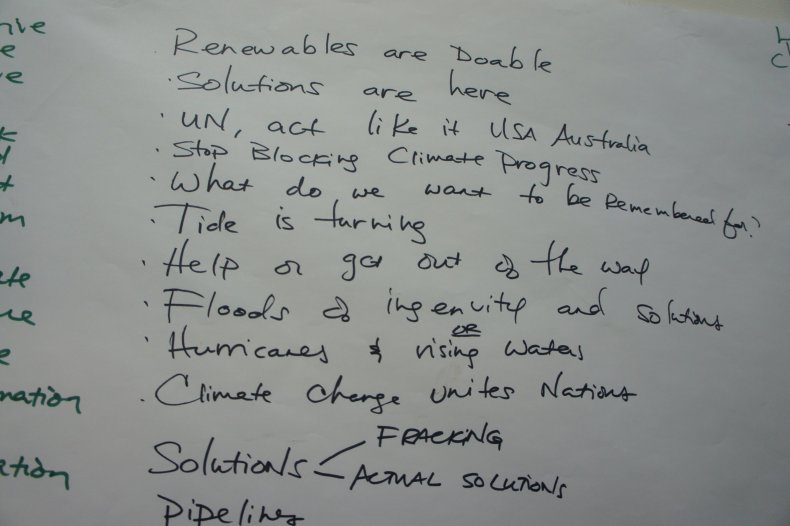 nive
e
ve
k
d
t
m
ate
ure
e
mation
ation
· Renewables are Doable
· Solutions are here
· UN, act like it USA Australia
· Stop Blocking Climate Progress
· What do we want to be Remembered for?
· Tide is turning
· Help or get out of the way
· Floods of ingenuity and solutions
OR
· Hurricanes & rising waters
· Climate Change unites Nations
Solutions < FRACKING
ACTUAL SOLUTIONS
Pipelines
L
C